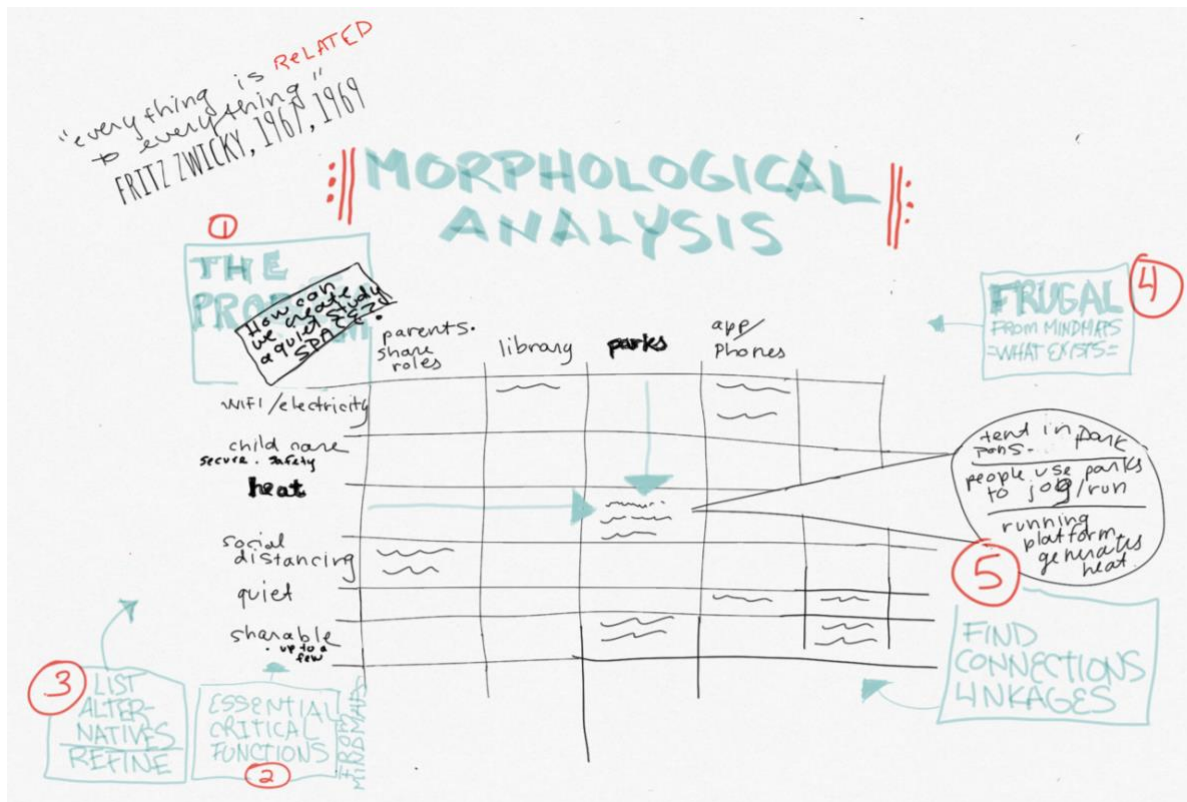 "everything is RELATED
to everything"
FRITZ ZWICKY, 1967, 1969
MORPHOLOGICAL
ANALYSIS
1
THE
How can
we create
a quiet study
SPACE?
parents.
share
roles
library
parks
app/
phones
4
FRUGAL
FROM MINDMAPS
=WHAT EXISTS=
WIFI/electricity
child care
secure. safety
heat
social
distancing
quiet
sharable
. up to a
few
tent in park
people use parks
to jog/run
running
platform
generates
heat.
5
FIND
CONNECTIONS
LINKAGES
3
LIST
ALTER-
NATIVES
REFINE
ESSENTIAL
CRITICAL
FUNCTIONS
2
FROM
MINDMAPS